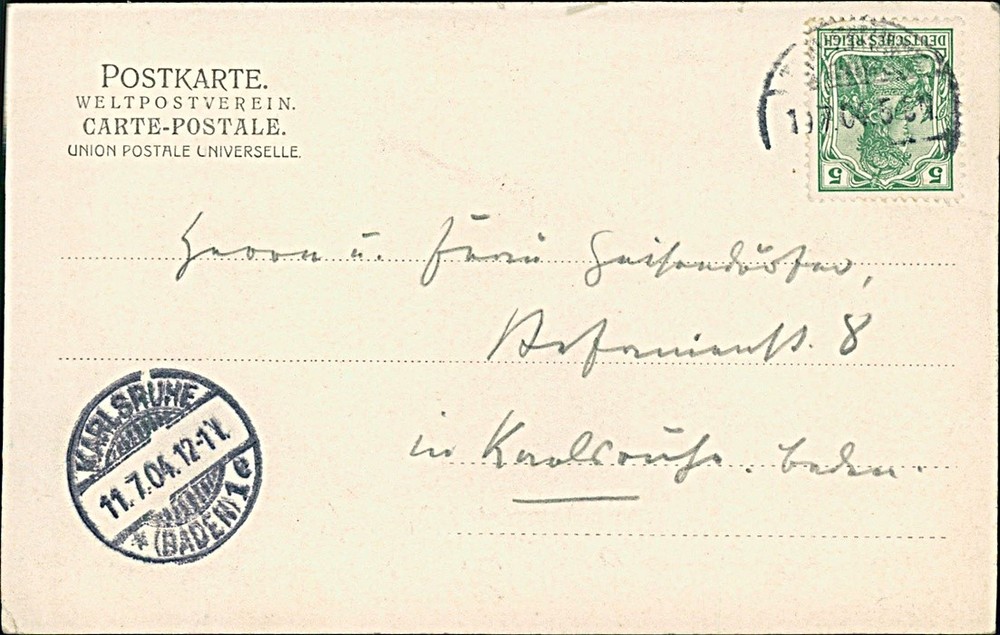 POSTKARTE.
WELTPOSTVEREIN.
CARTE-POSTALE.
UNION POSTALE UNIVERSELLE.
DEUTSCHES REICH
5 5
Herrn u. Frau
Stefanienst. 8
in Karlsruhe. Baden.
KARLSRUHE
11.7.04. 12-1 V.
(BADEN) 1e